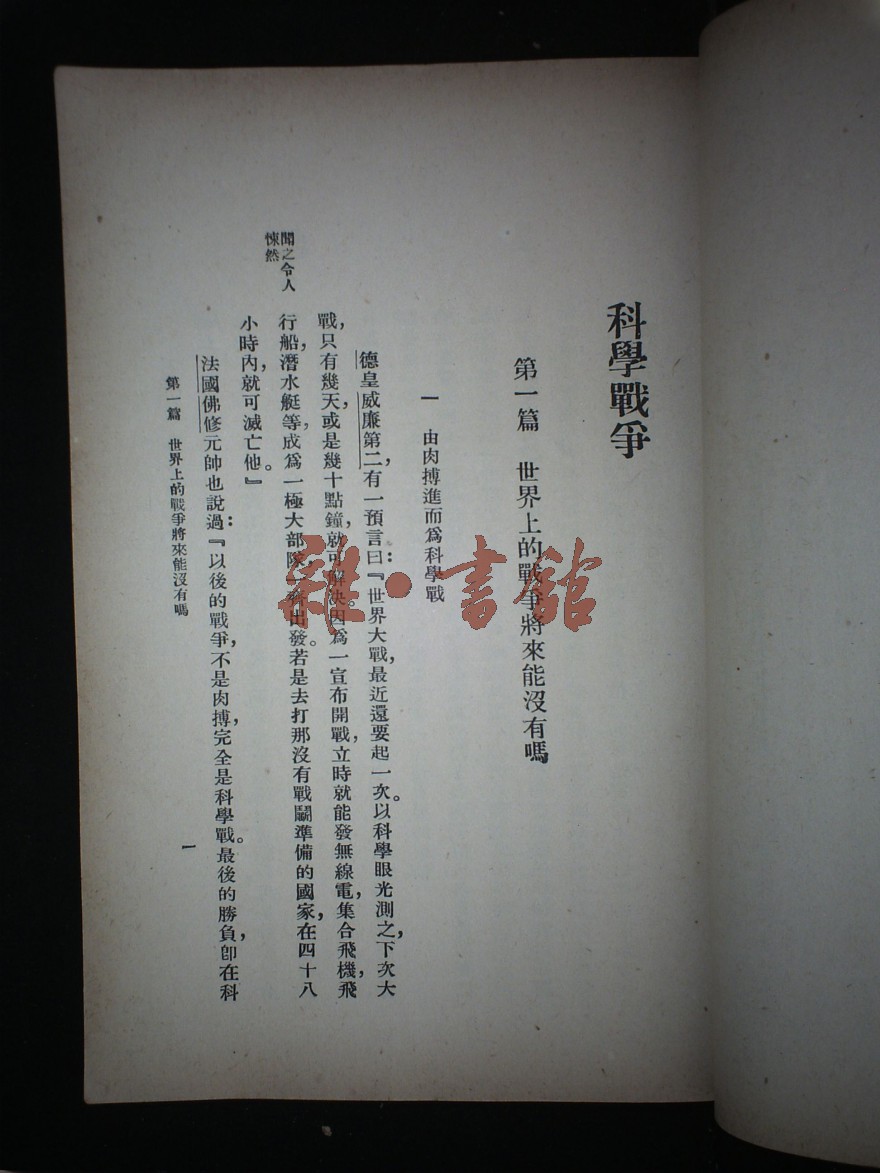 科學戰爭
第一篇　世界上的戰爭將來能沒有嗎
一　由肉搏進而爲科學戰
德皇威廉第二，有一預言曰：『世界大戰，最近還要起一次。以科學眼光測之，下次大
戰，只有幾天，或是幾十點鐘，就可解決。因爲一宣布開戰，立時就能發無線電，集合飛機，飛
行船，潛水艇等，成爲一極大部隊，出發。若是去打那沒有戰鬭準備的國家，在四十八
小時內，就可滅亡他。』
聞之令人
悚然
法國佛修元帥也說過：『以後的戰爭，不是肉搏，完全是科學戰。最後的勝負，卽在科
第一篇　世界上的戰爭將來能沒有嗎
一
雜·書館